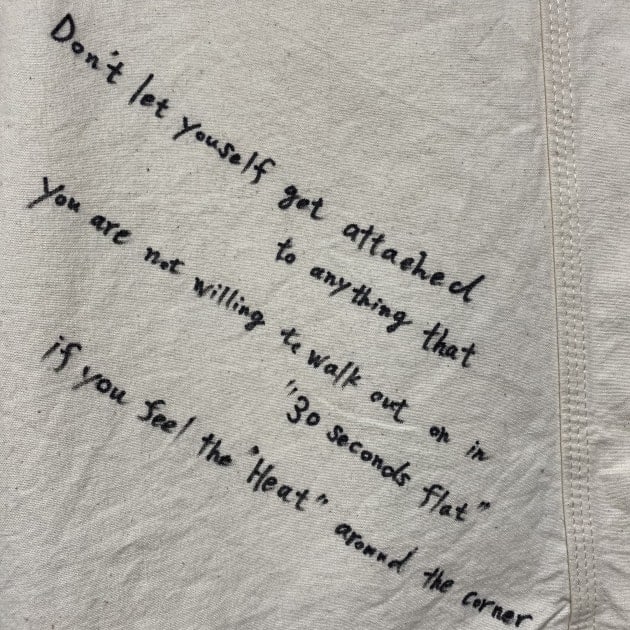 Don't let youself get attached
to anything that
you are not willing to walk out on in
"30 seconds flat"
if you feel the "Heat" around the corner